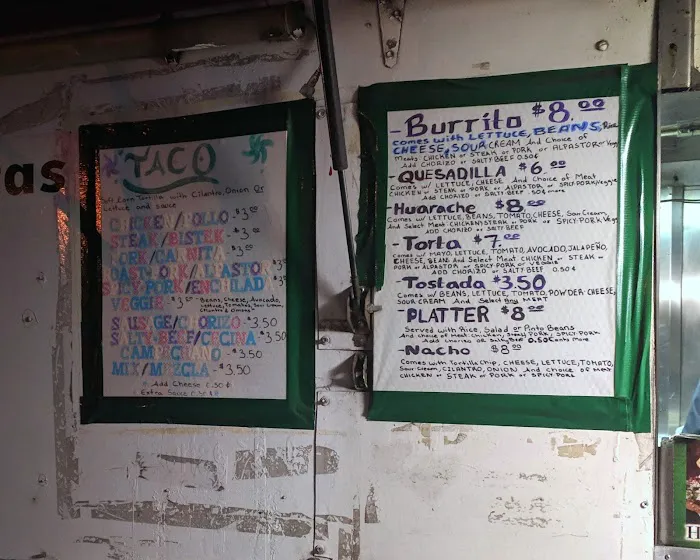 as
TACO
Soft Corn Tortilla with Cilantro, Onion Or
Lettuce and sauce
CHICKEN/POLLO - $3.00
STEAK/BISTEK - $3.00
PORK/CARNITA - $3.00
ROAST PORK/ALPASTOR $3
SPICY PORK/ENCHILAD $3
VEGGIE - $3.00 Beans, Cheese, Avocado,
Lettuce, Tomatos, Sour Cream,
Cilantro & Onions
SAUSAGE/CHORIZO - 3.50
SALTY-BEEF/CECINA - 3.50
CAMPECHANO - $3.50
MIX/MEZCLA - $3.50
Add Cheese 0.50¢
Extra Sauce 0.50¢
- Burrito $8.00
Comes with LETTUCE, BEANS, Rice
CHEESE, SOUR CREAM AND Choice of
Meats CHICKEN or STEAK or PORK or ALPASTOR or Veggie
Add CHORIZO or SALTY BEEF 0.50¢
- QUESADILLA $6.00
Comes w/ LETTUCE, CHEESE And Choice of Meat
CHICKEN or STEAK or PORK or ALPASTOR or SPICY PORK/Veggie
Add CHORIZO or SALTY BEEF .50¢ more
- Huarache $8.00
Comes w/ LETTUCE, BEANS, TOMATO, CHEESE, Sour Cream,
And Select Meat CHICKEN/STEAK or PORK or SPICY-PORK, Veg
ADD CHORIZO or SALTY BEEF
- Torta $7.00
Comes w/ MAYO, LETTUCE, TOMATO, AVOCADO, JALAPEÑO,
CHEESE, BEANS And Select Meat CHICKEN or STEAK -
PORK or ALPASTOR or SPICY PORK or VEGGIE
ADD CHORIZO or SALTY BEEF 0.50¢
- Tostada $3.50
Comes w/ BEANS, LETTUCE, TOMATO, POWDER CHEESE,
SOUR CREAM And Select Any MEAT
- PLATTER $8.00
Served with Rice, Salad or Pinto Beans
And Choice of Meat Chicken, Steak, PORK, SPICY-PORK
Add Chorizo or Salty Beef 0.50 Cents More
- Nacho $8.00
Comes with Tortilla Chip, CHEESE, LETTUCE, TOMATO,
Sour Cream, CILANTRO, ONION And Choice of Meat
CHICKEN or STEAK or PORK or SPICY PORK
H